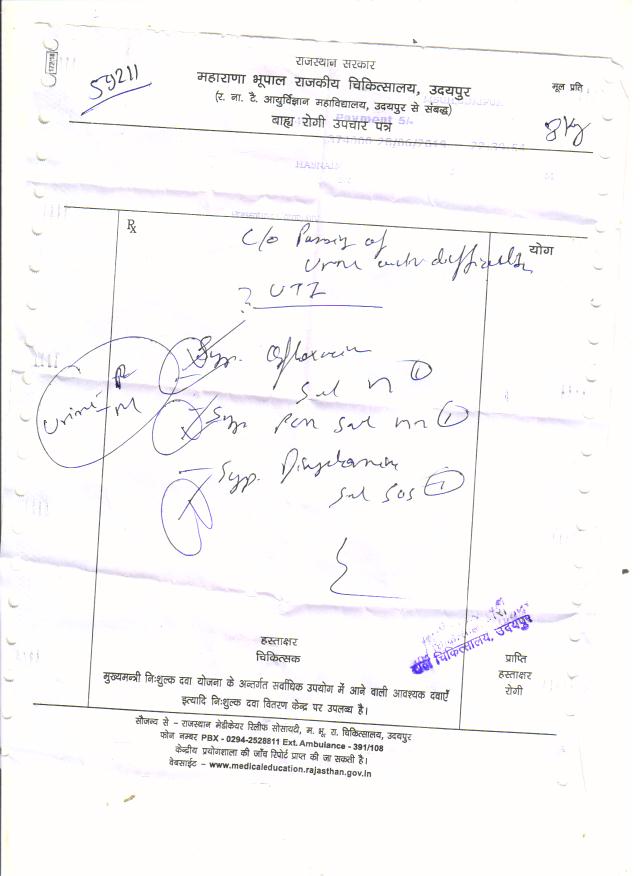 राजस्थान सरकार
महाराणा भूपाल राजकीय चिकित्सालय, उदयपुर
मूल प्रति
(र. ना. टै. आयुर्विज्ञान महाविद्यालय, उदयपुर से संबद्ध)
बाह्य रोगी उपचार पत्र
59211
8 Kg
Payment 5/-
HASNAIN
Rx
योग
C/o Passing of
Urine with difficulty
? UTI
Syp. Ofloxacin
5ml
Urine R
M
Syp PCM 5ml
Syp.
5ml SOS
चिकित्सालय, उदयपुर
हस्ताक्षर
चिकित्सक
प्राप्ति
हस्ताक्षर
रोगी
मुख्यमन्त्री निःशुल्क दवा योजना के अन्तर्गत सर्वाधिक उपयोग में आने वाली आवश्यक दवाएँ
इत्यादि निःशुल्क दवा वितरण केन्द्र पर उपलब्ध है।
सौजन्य से – राजस्थान मेडीकेयर रिलीफ सोसायटी, म. भू. रा. चिकित्सालय, उदयपुर
फोन नम्बर PBX - 0294-2528811 Ext. Ambulance - 391/108
केन्द्रीय प्रयोगशाला की जाँच रिपोर्ट प्राप्त की जा सकती है।
वेबसाईट – www.medicaleducation.rajasthan.gov.in